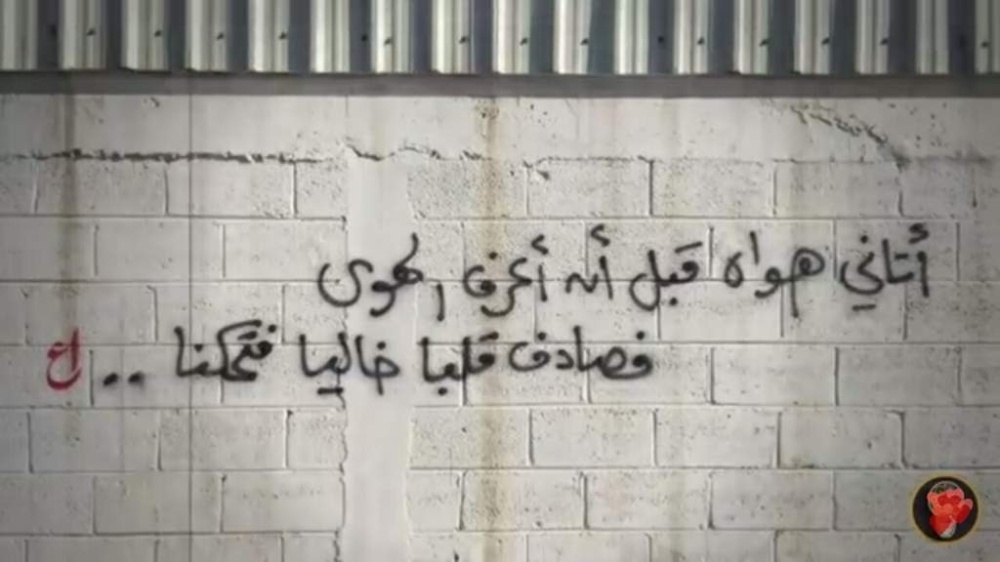 أتاني هواه قبل أن أعرف الهوى
فصادف قلبا خاليا فتمكنا .. ع